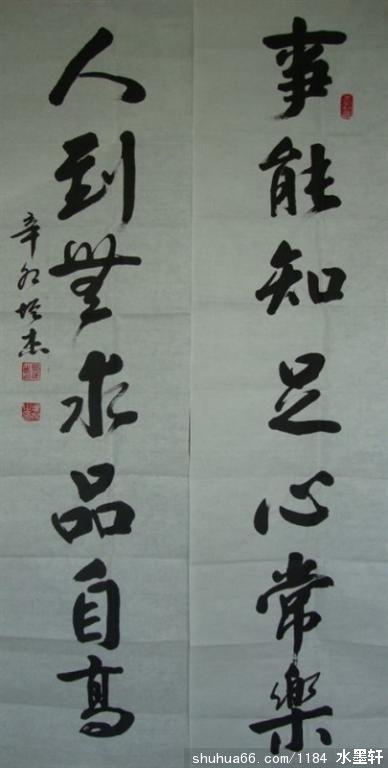 事能知足心常樂
人到無求品自高
辛卯培杰
shuhua66.com/1184 水墨轩